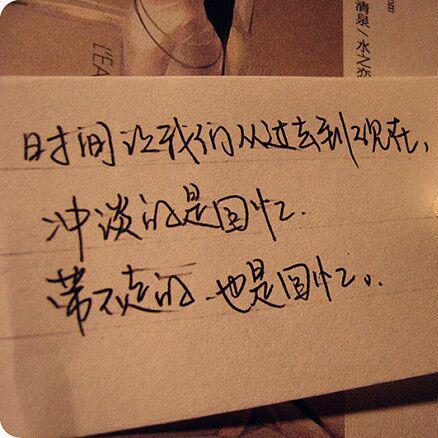 清泉/水之恋
时间让我们从过去到现在,
冲淡的是回忆.
带不走的.也是回忆。